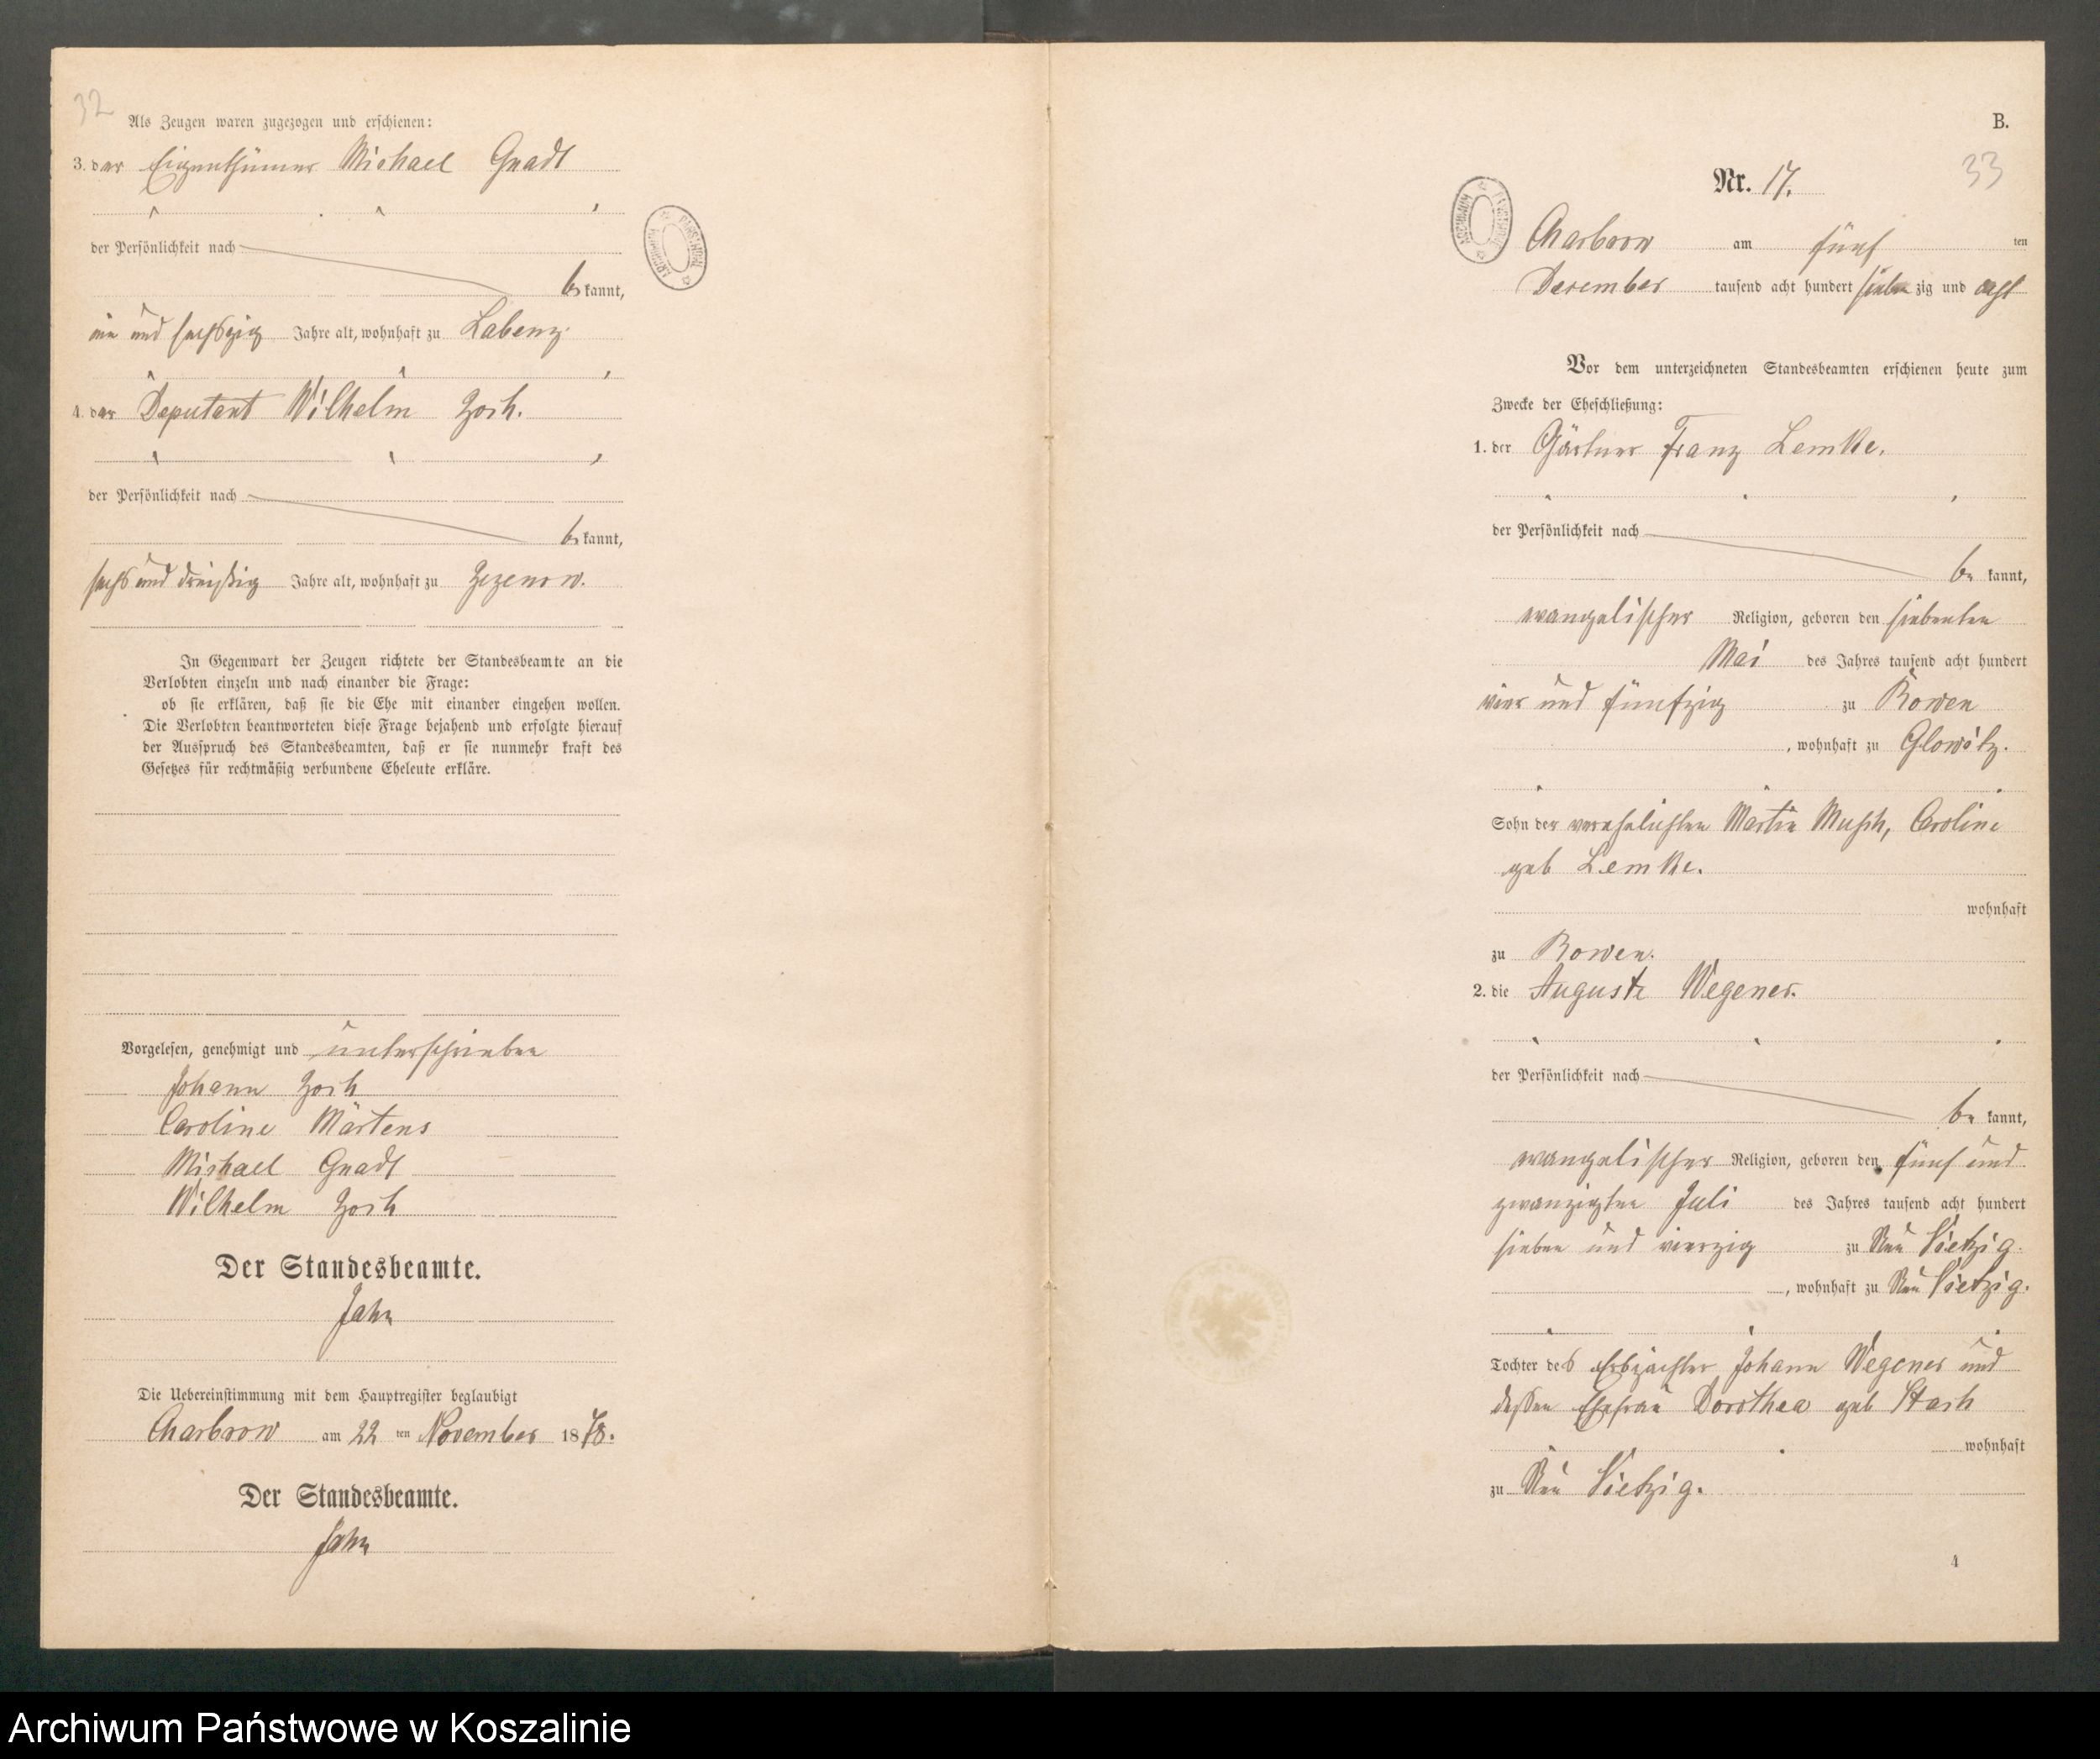 32
Als Zeugen waren zugezogen und erschienen:
3. der Eigenthümer Michael Gnadt
der Persönlichkeit nach
be kannt,
ein und sechszig Jahre alt, wohnhaft zu Labenz
4. der Deputant Wilhelm Zoch.
der Persönlichkeit nach
be kannt,
sechs und dreißig Jahre alt, wohnhaft zu Zezenow.
In Gegenwart der Zeugen richtete der Standesbeamte an die
Verlobten einzeln und nach einander die Frage:
ob sie erklären, daß sie die Ehe mit einander eingehen wollen.
Die Verlobten beantworteten diese Frage bejahend und erfolgte hierauf
der Ausspruch des Standesbeamten, daß er sie nunmehr kraft des
Gesetzes für rechtmäßig verbundene Eheleute erkläre.
Vorgelesen, genehmigt und unterschrieben
Johann Zoch
Caroline Märtens
Michael Gnadt
Wilhelm Zoch
Der Standesbeamte.
Jahn
Die Uebereinstimmung mit dem Hauptregister beglaubigt
Charbrow am 22 ten November 1878.
Der Standesbeamte.
Jahn
B.
33
Nr. 17.
Charbrow am fünf ten
December tausend acht hundert sieben zig und acht
Vor dem unterzeichneten Standesbeamten erschienen heute zum
Zwecke der Eheschließung:
1. der Gärtner Franz Lemke.
der Persönlichkeit nach
be kannt,
evangelischer Religion, geboren den siebenten
Mai des Jahres tausend acht hundert
vier und fünfzig zu Rowen
, wohnhaft zu Glowitz.
Sohn der verehelichten Martin Musch, Caroline
geb Lemke.
wohnhaft
zu Rowen.
2. die Auguste Wegener.
der Persönlichkeit nach
be kannt,
evangelischer Religion, geboren den fünf und
zwanzigsten Juli des Jahres tausend acht hundert
sieben und vierzig zu Neu Vietzig.
, wohnhaft zu Neu Vietzig.
Tochter des Erbpächter Johann Wegener und
dessen Ehefrau Dorothea geb Stach
wohnhaft
zu Neu Vietzig.
4
Archiwum Państwowe w Koszalinie